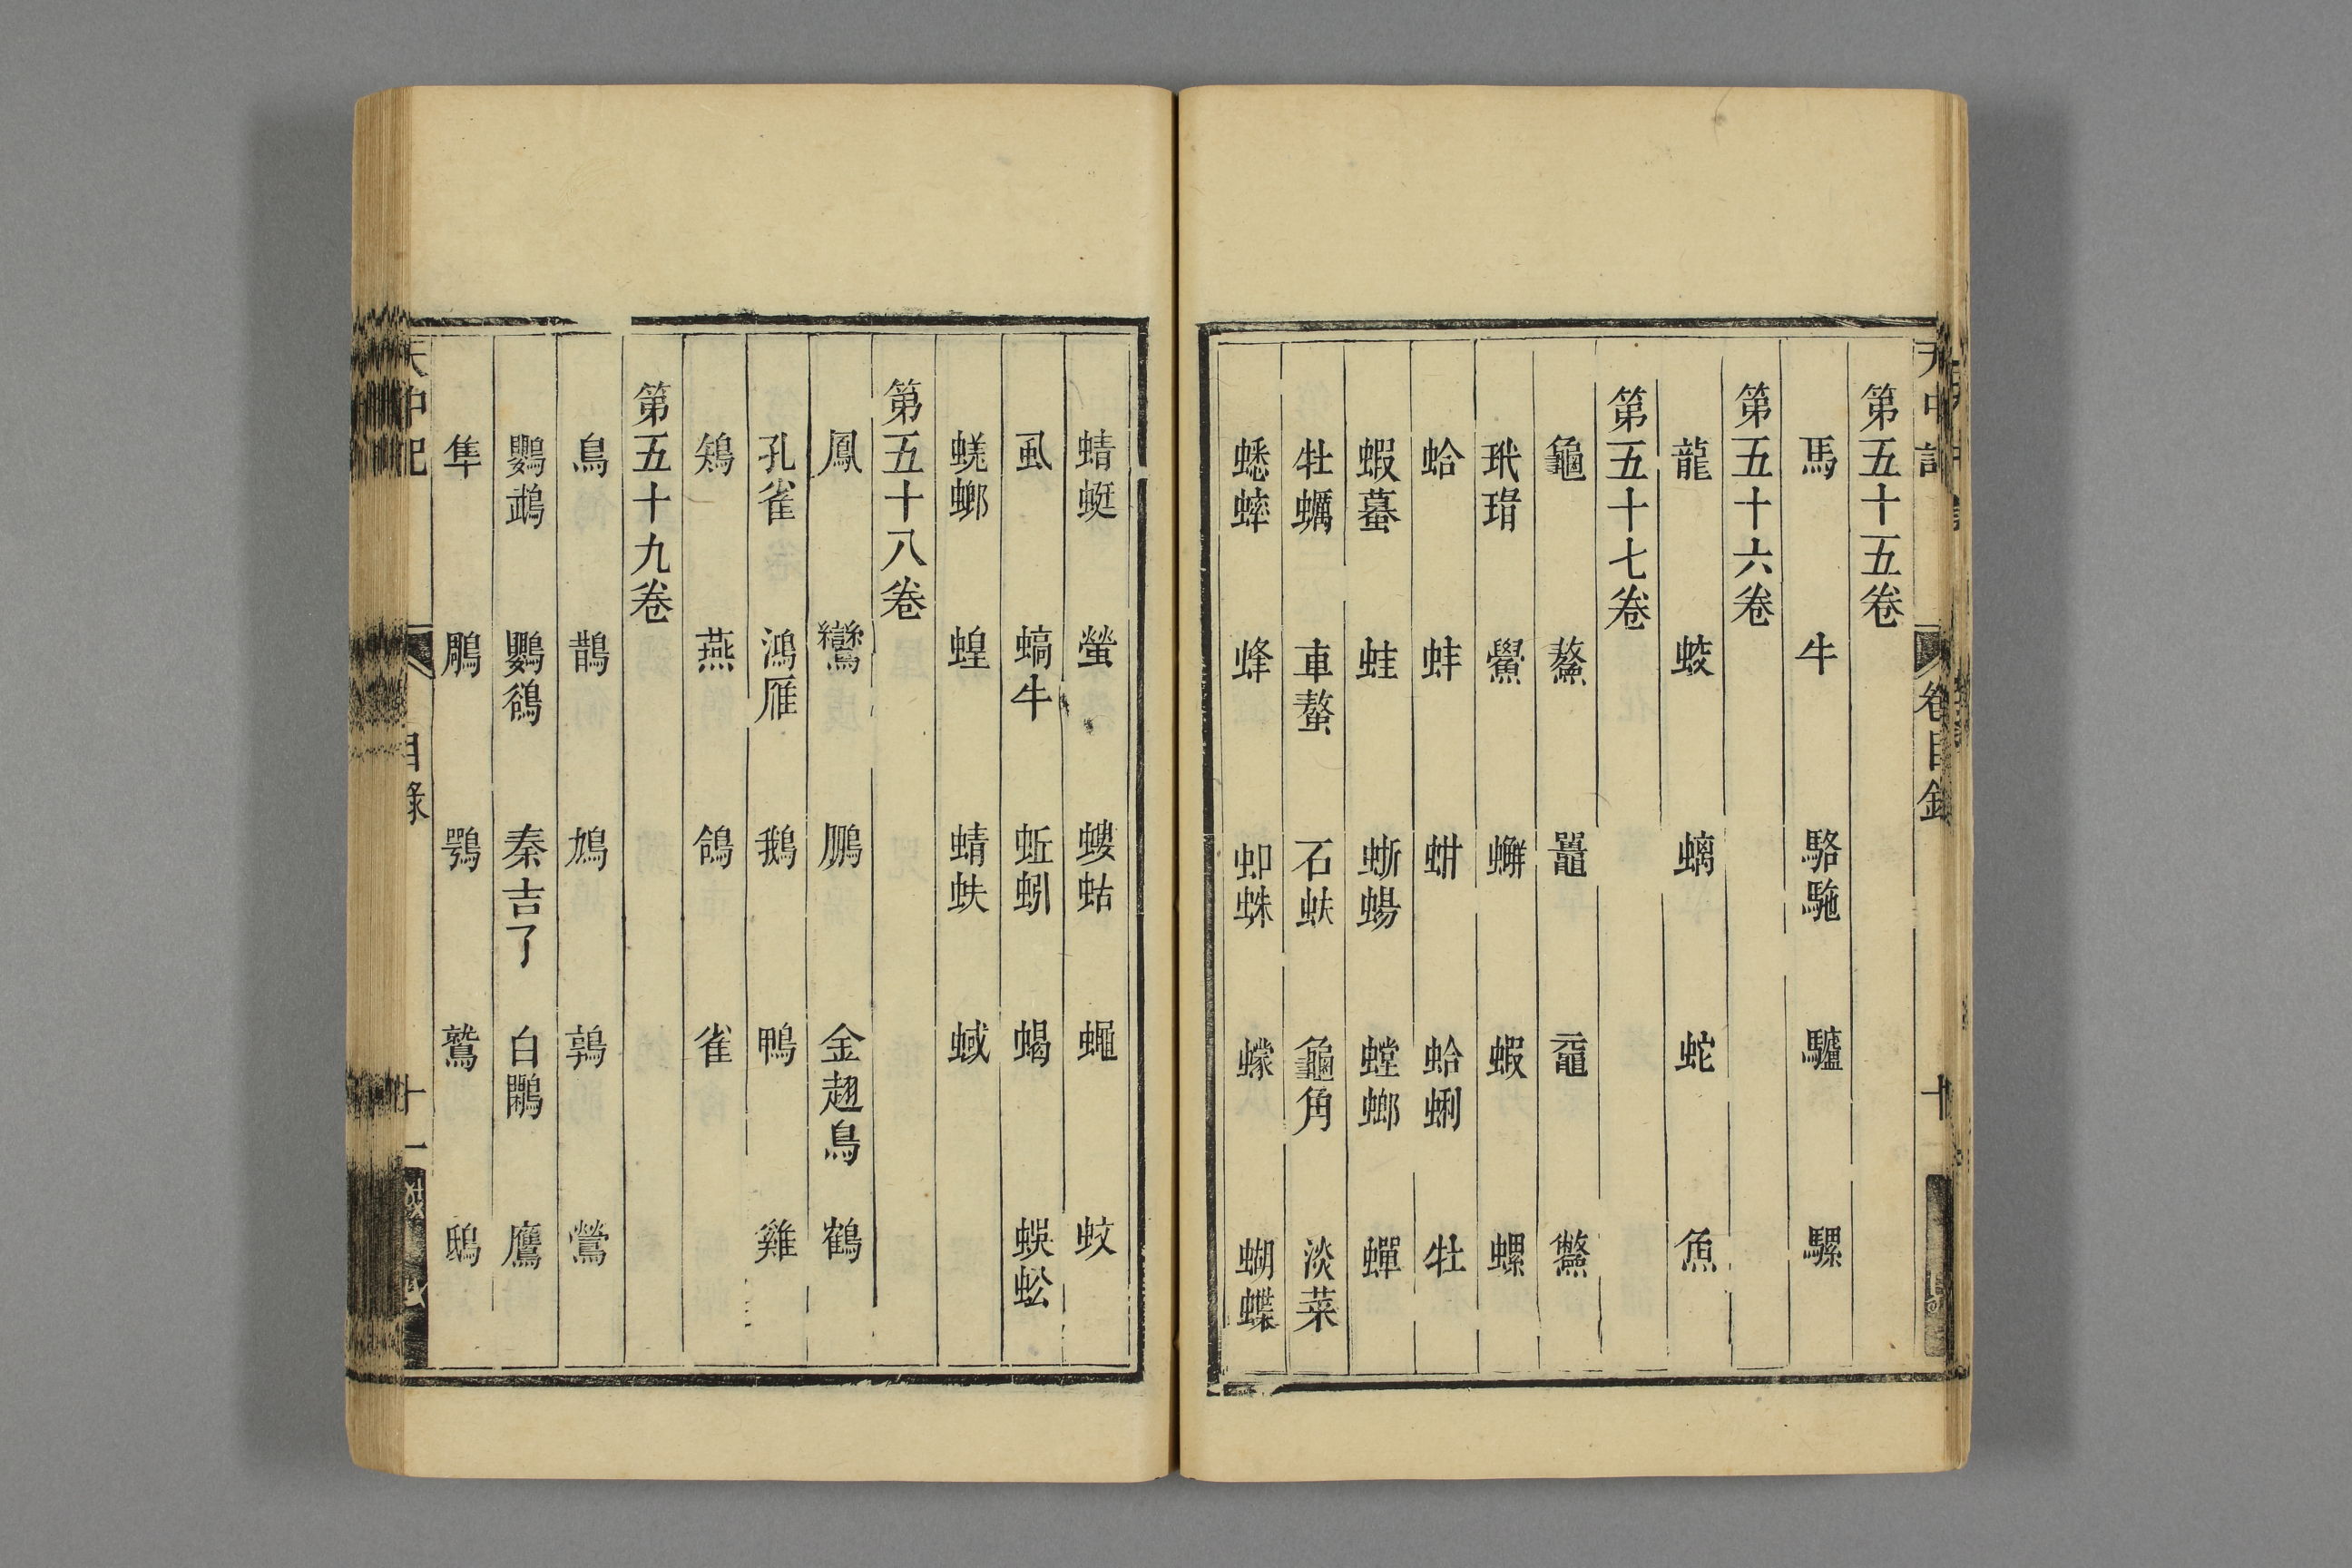 天中記　卷目錄　十
第五十五卷
馬　牛　駱駞　驢　騾
第五十六卷
龍　蛟　螭　蛇　魚
第五十七卷
龜　鼇　鼉　黿　鱉
玳瑁　鱟　蠏　蝦　螺
蛤　蚌　蚶　蛤蜊　牡
蝦蟇　蛙　蜥蜴　螳螂　蟬
牡蠣　車螯　石蚨　龜角　淡菜
蟋蟀　蜂　蜘蛛　蠓　蝴蝶
蜻蜓　螢　螻蛄　蠅　蚊
虱　蝸牛　蚯蚓　蝎　蜈蚣
蜣螂　蝗　蜻蚨　蜮
第五十八卷
鳳　鸞　鵬　金翅鳥　鶴
孔雀　鴻雁　鵝　鴨　雞
鴙　燕　鴿　雀
第五十九卷
鳥　鵲　鳩　鶉　鶯
鸚鵡　鸜鵒　秦吉了　白鷳　鷹
隼　鵰　鶚　鷲　鴟
天中記　目錄　十一